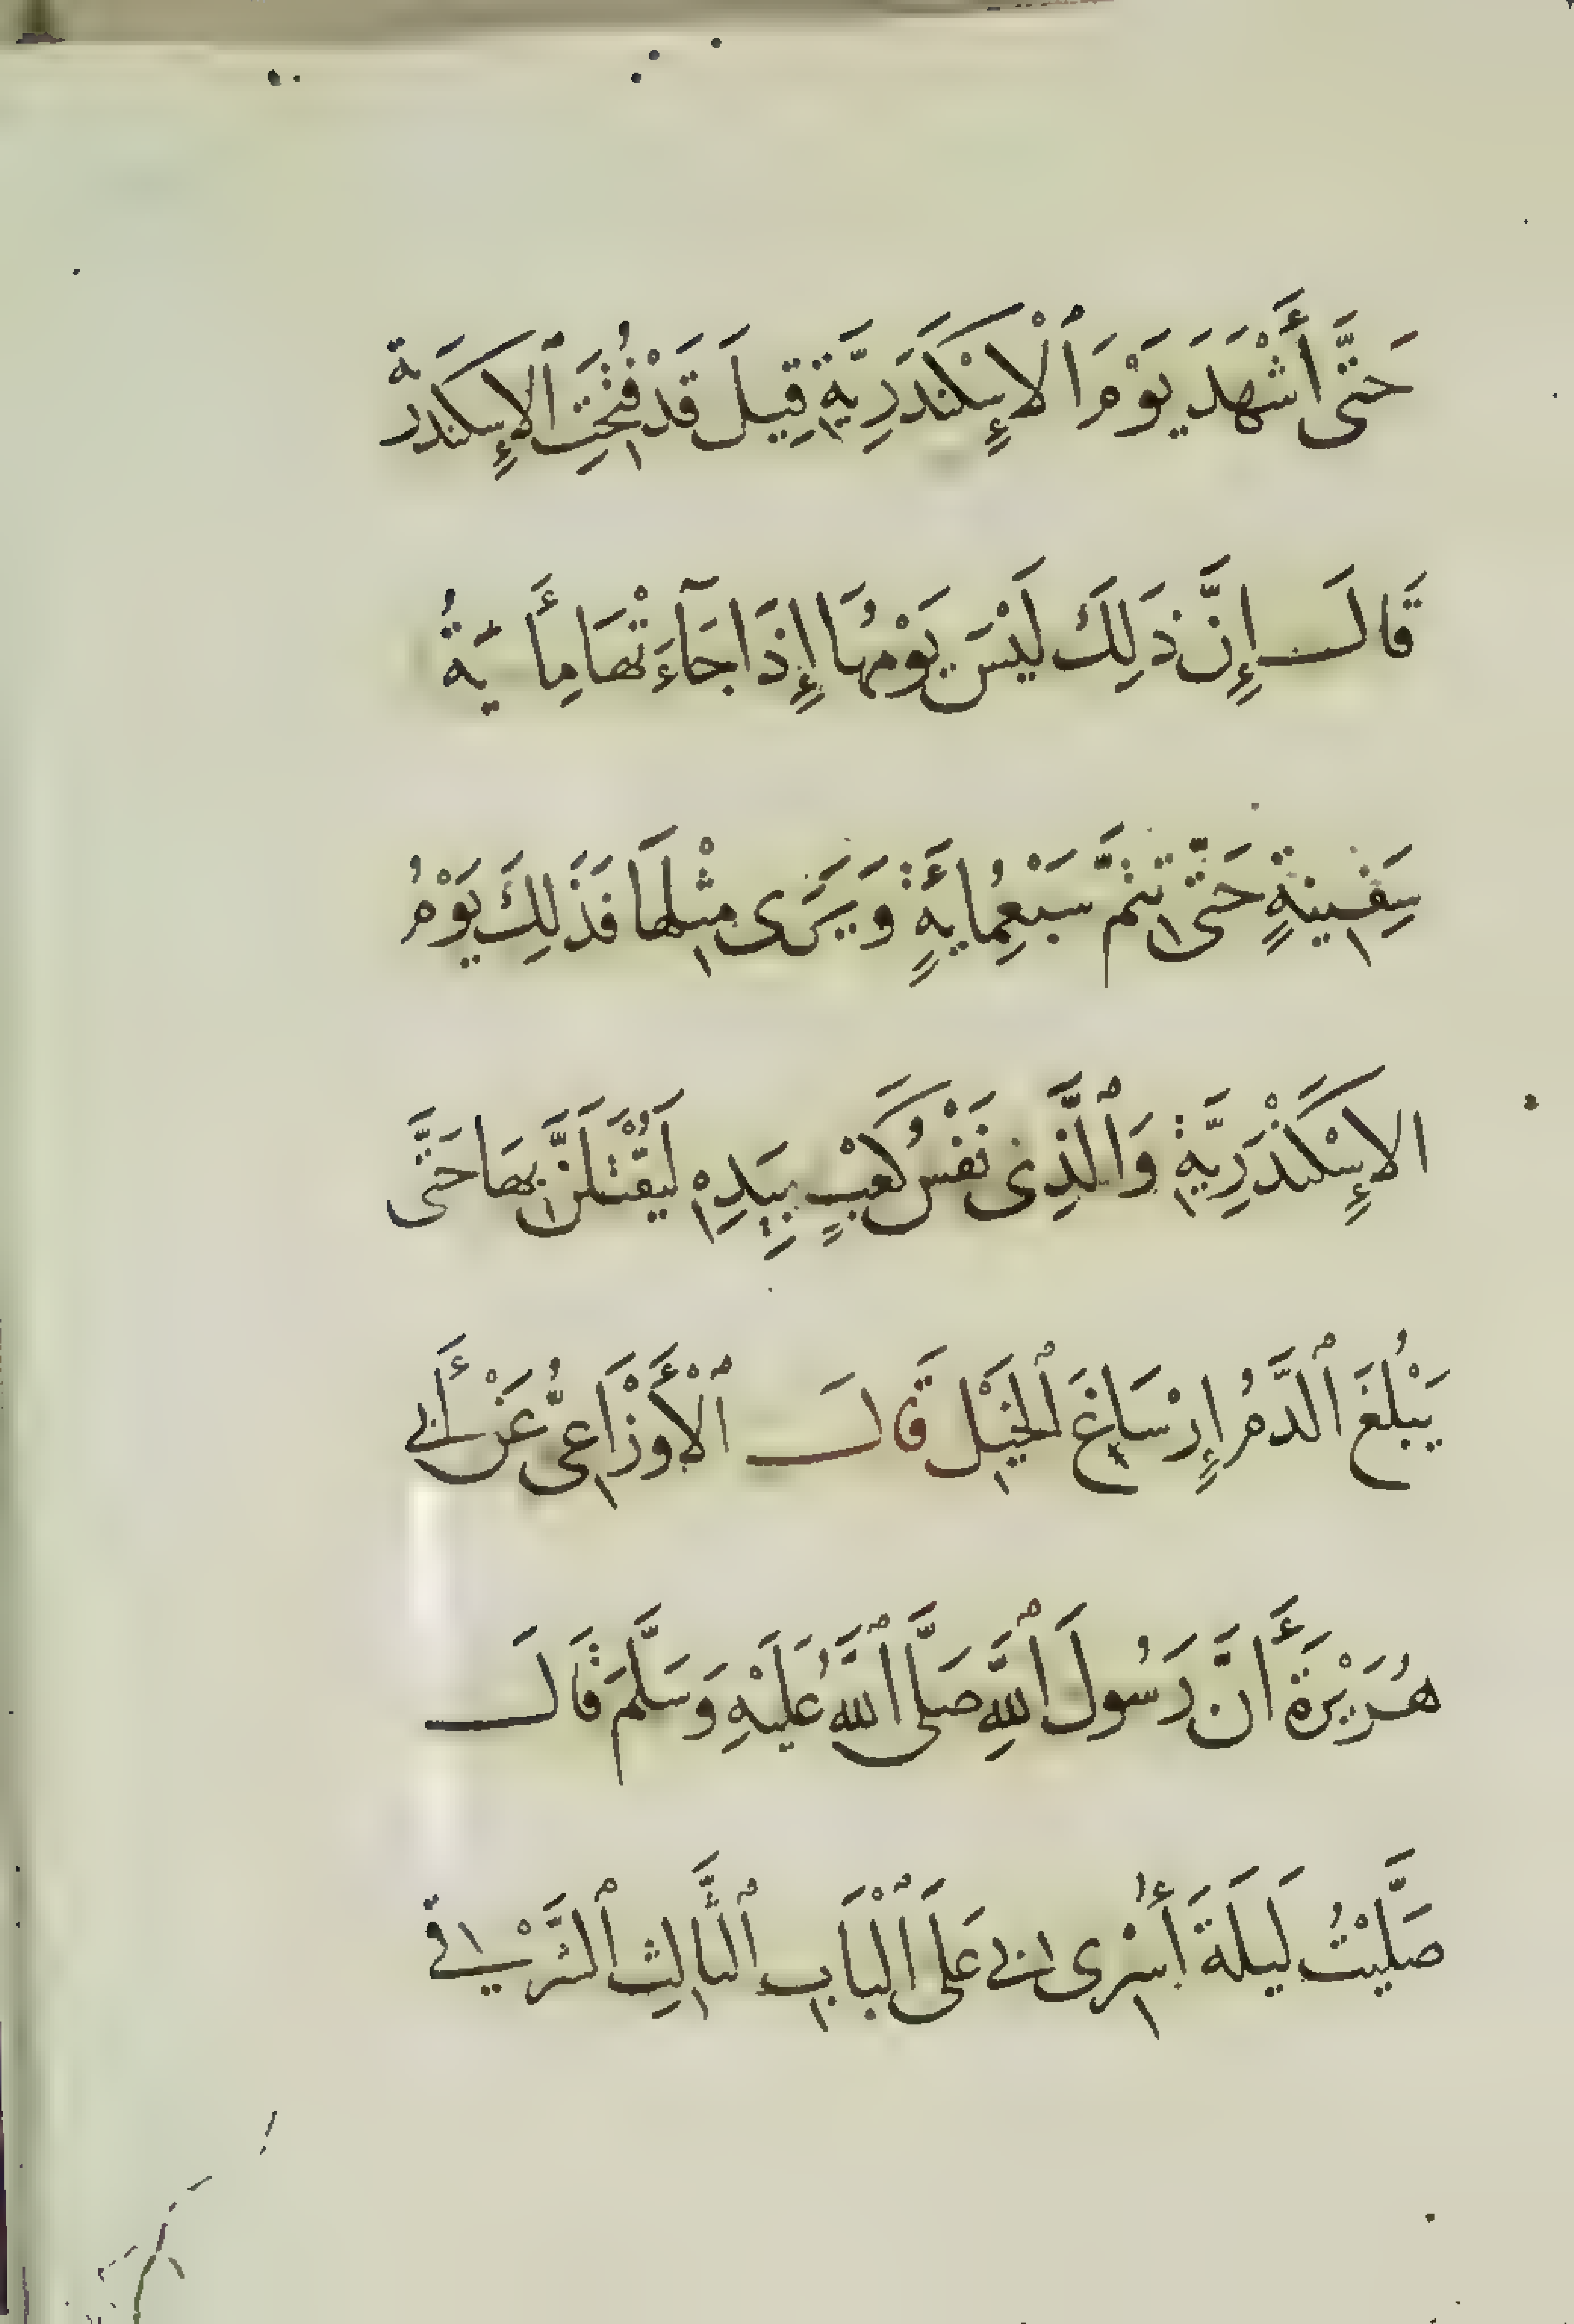 حَتَّى أَشْهَدَ يَوْمَ ٱلْإِسْكَنْدَرِيَّةِ قِيلَ قَدْ فُتِحَتِ ٱلإِسكندرية
قَالَ إِنَّ ذَلِكَ لَيْسَ يَوْمُهَا إِذَا جَآءَتْهَا مِأَيَةُ
سَفِينَةٍ حَتَّى تَتِمَّ سَبْعُمِايَةٍ وَيَتْرَى مِثْلَهَا فَذَلِكَ يَوْمُ
الإِسْكَنْدَرِيَّةِ وَٱلَّذِى نَفْسُ كَعْبٍ بِيَدِهِ لَيُقْتَلَنَّ بِهَا حَتَّى
يَبْلُغَ ٱلدَّمُ إِرْسَاغَ ٱلْخَيْلِ قَالَ ٱلْأَوْزَاعِىُّ عَنْ أَبِي
هُرَيْرَةَ أَنَّ رَسُولَ ٱللَّهِ صَلَّى ٱللَّهُ عَلَيْهِ وَسَلَّمَ قَالَ
صَلَّيْتُ لَيلَةَ أُسْرِى بِي عَلَى ٱلْبَابِ ٱلثَّالِثِ ٱلشَّرْقِي